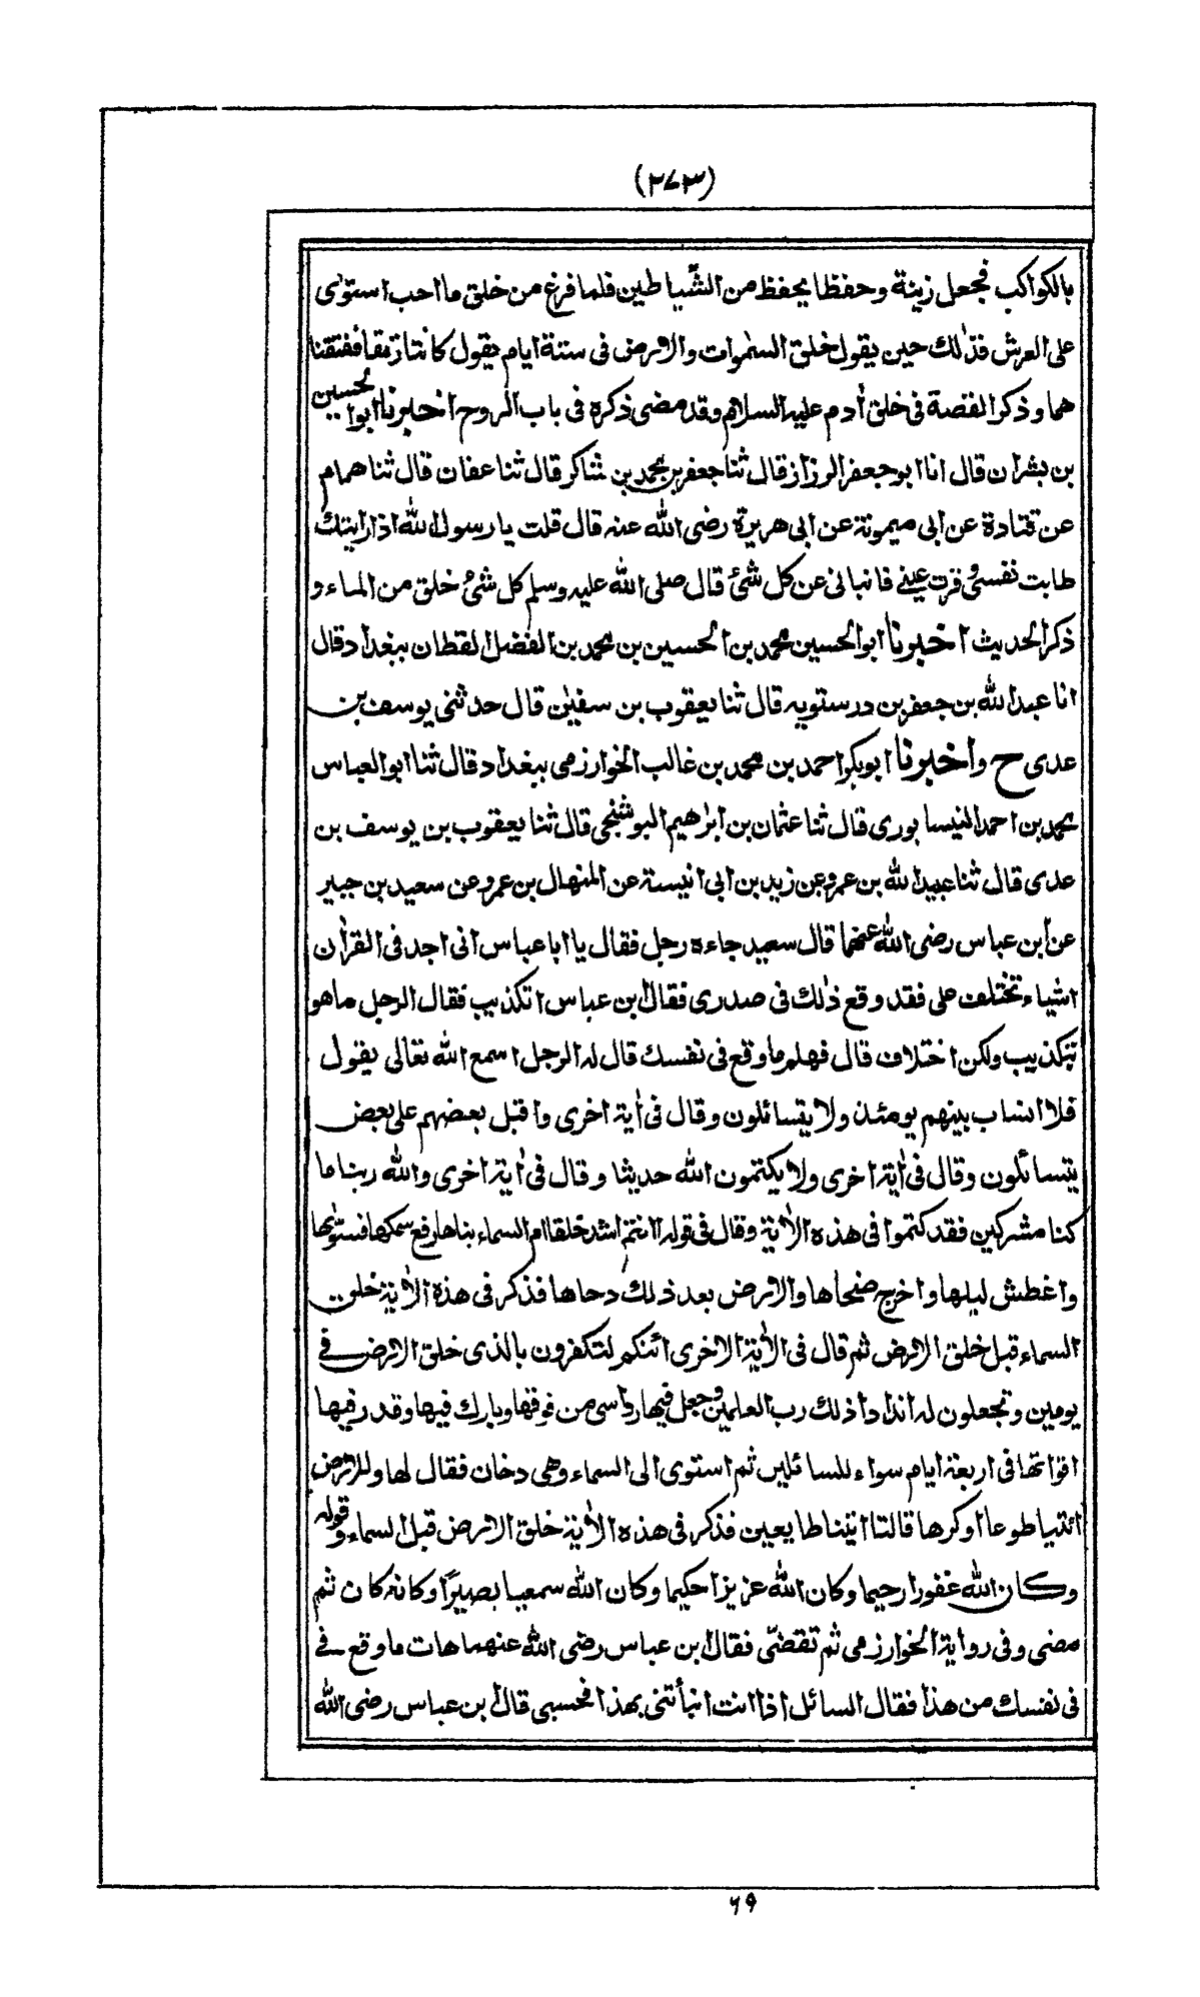 (٢٧٣)
بالكواكب فجعل زينة وحفظا يحفظ من الشّياطين فلما فرغ من خلق ما احب استوٰى
على العرش فذٰلك حين يقول خلق السمٰوات والارض فى ستة ايام يقول كانتا رتقا ففتقنا
هما وذكر القصة فى خلق اٰدم عليه السلام وقد مضى ذكره فى باب الروح اخبرنا ابوا لحسين
بن بشران قال انا ابو جعفر الرزاز قال ثنا جعفر بن محمد بن شاكر قال ثنا عفان قال ثنا همام
عن قتادة عن ابى ميمونة عن ابى هريرة رضى الله عنه قال قلت يا رسول الله اذا رايتك
طابت نفسى و قرت عينے فانبانى عن كل شئ قال صلى الله عليه وسلم كل شئ خلق من الماء و
ذكر الحديث اخبرنا ابو الحسين محمد بن الحسين بن محمد بن الفضل القطان ببغداد قال
انا عبد الله بن جعفر بن درستويه قال ثنا يعقوب بن سفيٰن قال حدثنى يوسف بن
عدى ح واخبرنا ابو بكر احمد بن محمد بن غالب الخوارزمى ببغداد قال ثنا ابو العباس
محمد بن احمد النيسابورى قال ثنا عثمان بن ابرٰهيم البوشنجى قال ثنا يعقوب بن يوسف بن
عدى قال ثنا عبيد الله بن عمرو عن زيد بن ابى انيسة عن المنهال بن عمرو عن سعيد بن جبير
عن ابن عباس رضى الله عنهما قال سعيد جاءه رجل فقال يا ابا عباس انى اجد فى القراٰن
اشياء تختلف على فقد وقع ذٰلك فى صدرى فقال ابن عباس اتكذيب فقال الرجل ما هو
بتكذيب ولكن اختلاف قال فهلم ما وقع فى نفسك قال له الرجل اسمع الله تعالى يقول
فلا انساب بينهم يومئذ ولا يتسائلون وقال فى اٰية اخرى واقبل بعضهم على بعض
يتسائلون وقال فى اٰية اخرى ولا يكتمون الله حديثا وقال فى اٰية اخرى والله ربنا ما
كنا مشركين فقد كتموا فى هذه الاٰية وقال فى قوله اانتم اشد خلقا ام السماء بناها رفع سمكها فسوّٰها
واغطش ليلها واخرج ضحاها والارض بعد ذلك دحاها فذكر فى هذه الاٰية خلق
السماء قبل خلق الارض ثم قال فى الاٰية الاخرى ائنكم لتكفرون بالذى خلق الارض فے
يومين وتجعلون له اندادا ذلك رب العلمين وجعل فيها رواسى من فوقها وبارك فيها وقدر فيها
اقواتها فى اربعة ايام سواء للسائلين ثم استوى الى السماء وهى دخان فقال لها وللارض
ائتيا طوعا اوكرها قالتا اتينا طايعين فذكر فى هذه الاٰية خلق الارض قبل السماء وقوله
وكان الله غفورا رحيما وكان الله عزيزا حكيما وكان الله سمعيا بصيرًا وكانه كان ثم
مضى وفى رواية الخوارزمى ثم تقضّى فقال ابن عباس رضى الله عنهما هات ما وقع فے
فى نفسك من هذا فقال السائل اذا انت انبأتنى بهذا فحسبى قال ابن عباس رضى الله
٦٩